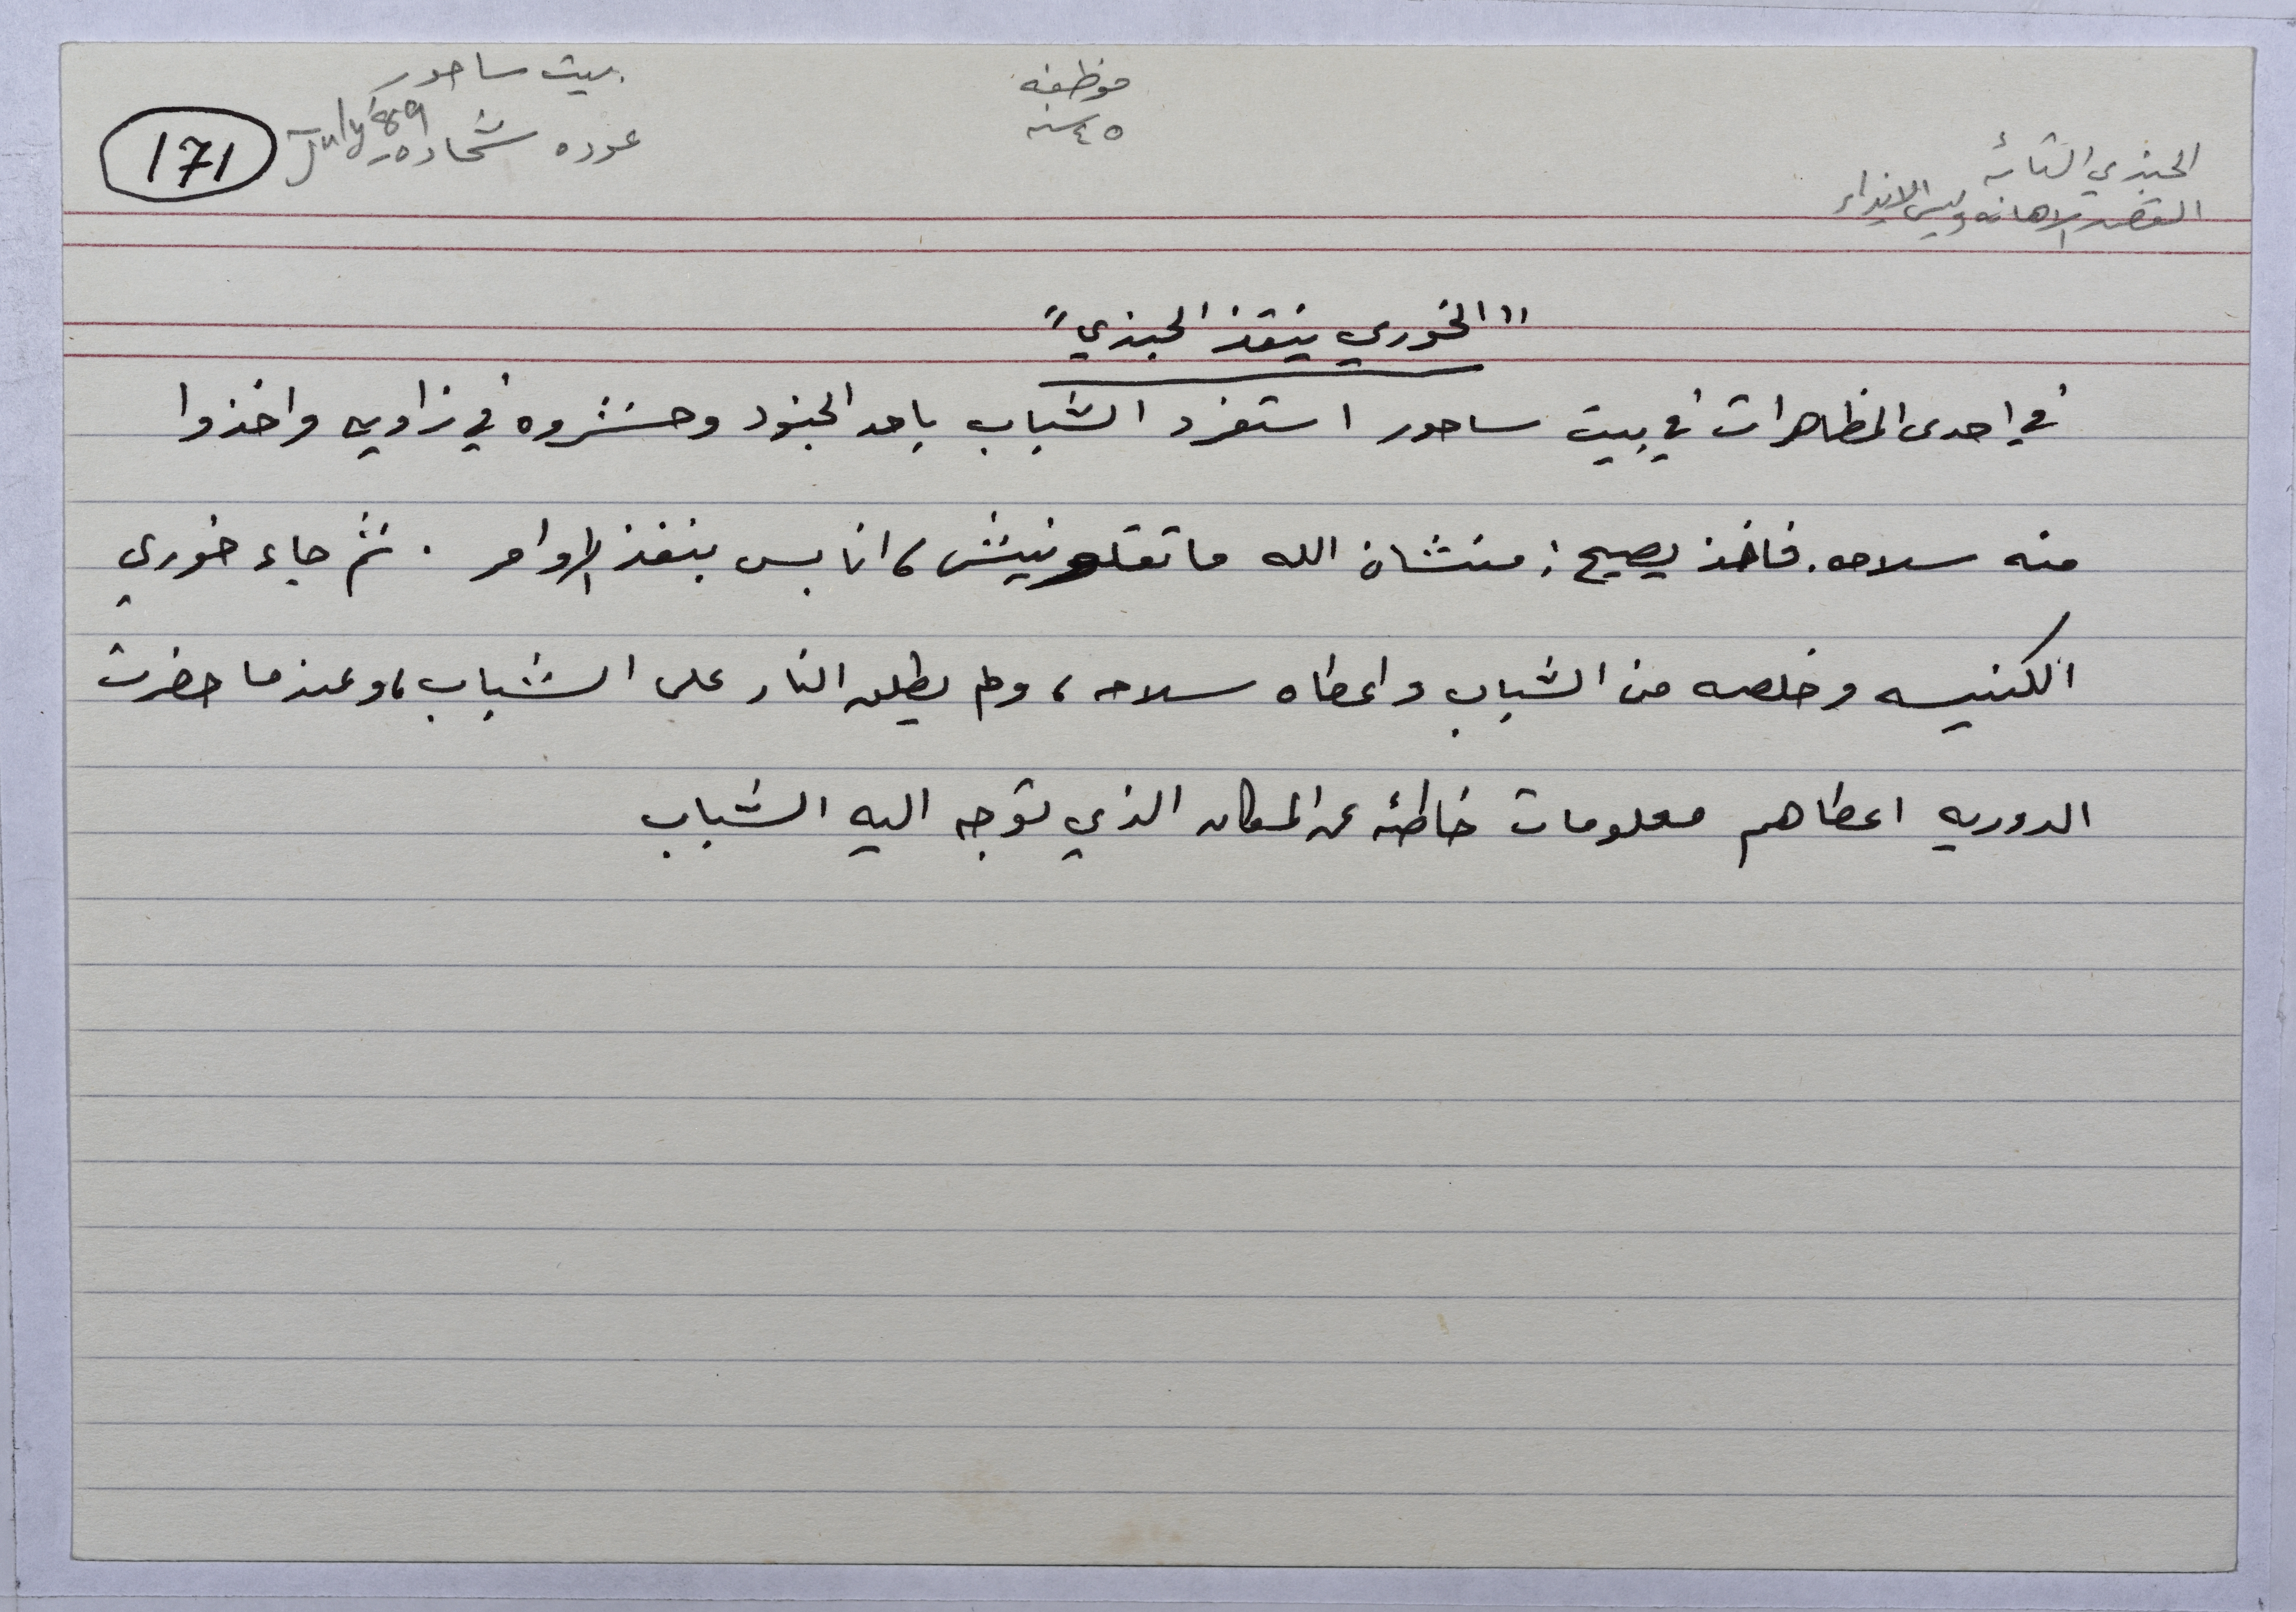 بيت ساحور
عوده شحاده July '89
171
موظفه
٤٥ سنه
الجندي التائه
القصد الاهانه وليس الايذاء
"الخوري ينقذ الجندي"
في احدى المظاهرات في بيت ساحور استفرد الشباب باحد الجنود وحشروه في زاويه واخذوا
منه سلاحه. فاخذ يصيح: منشان الله ما تقتلونيش، انا بس بنفذ الاوامر. ثم جاء خوري
الكنيسه وخلصه من الشباب واعطاه سلاحه، ولم يطلق النار على الشباب، وعندما حضرت
الدوريه اعطاهم معلومات خاطئه عن المكان الذي توجه اليه الشباب